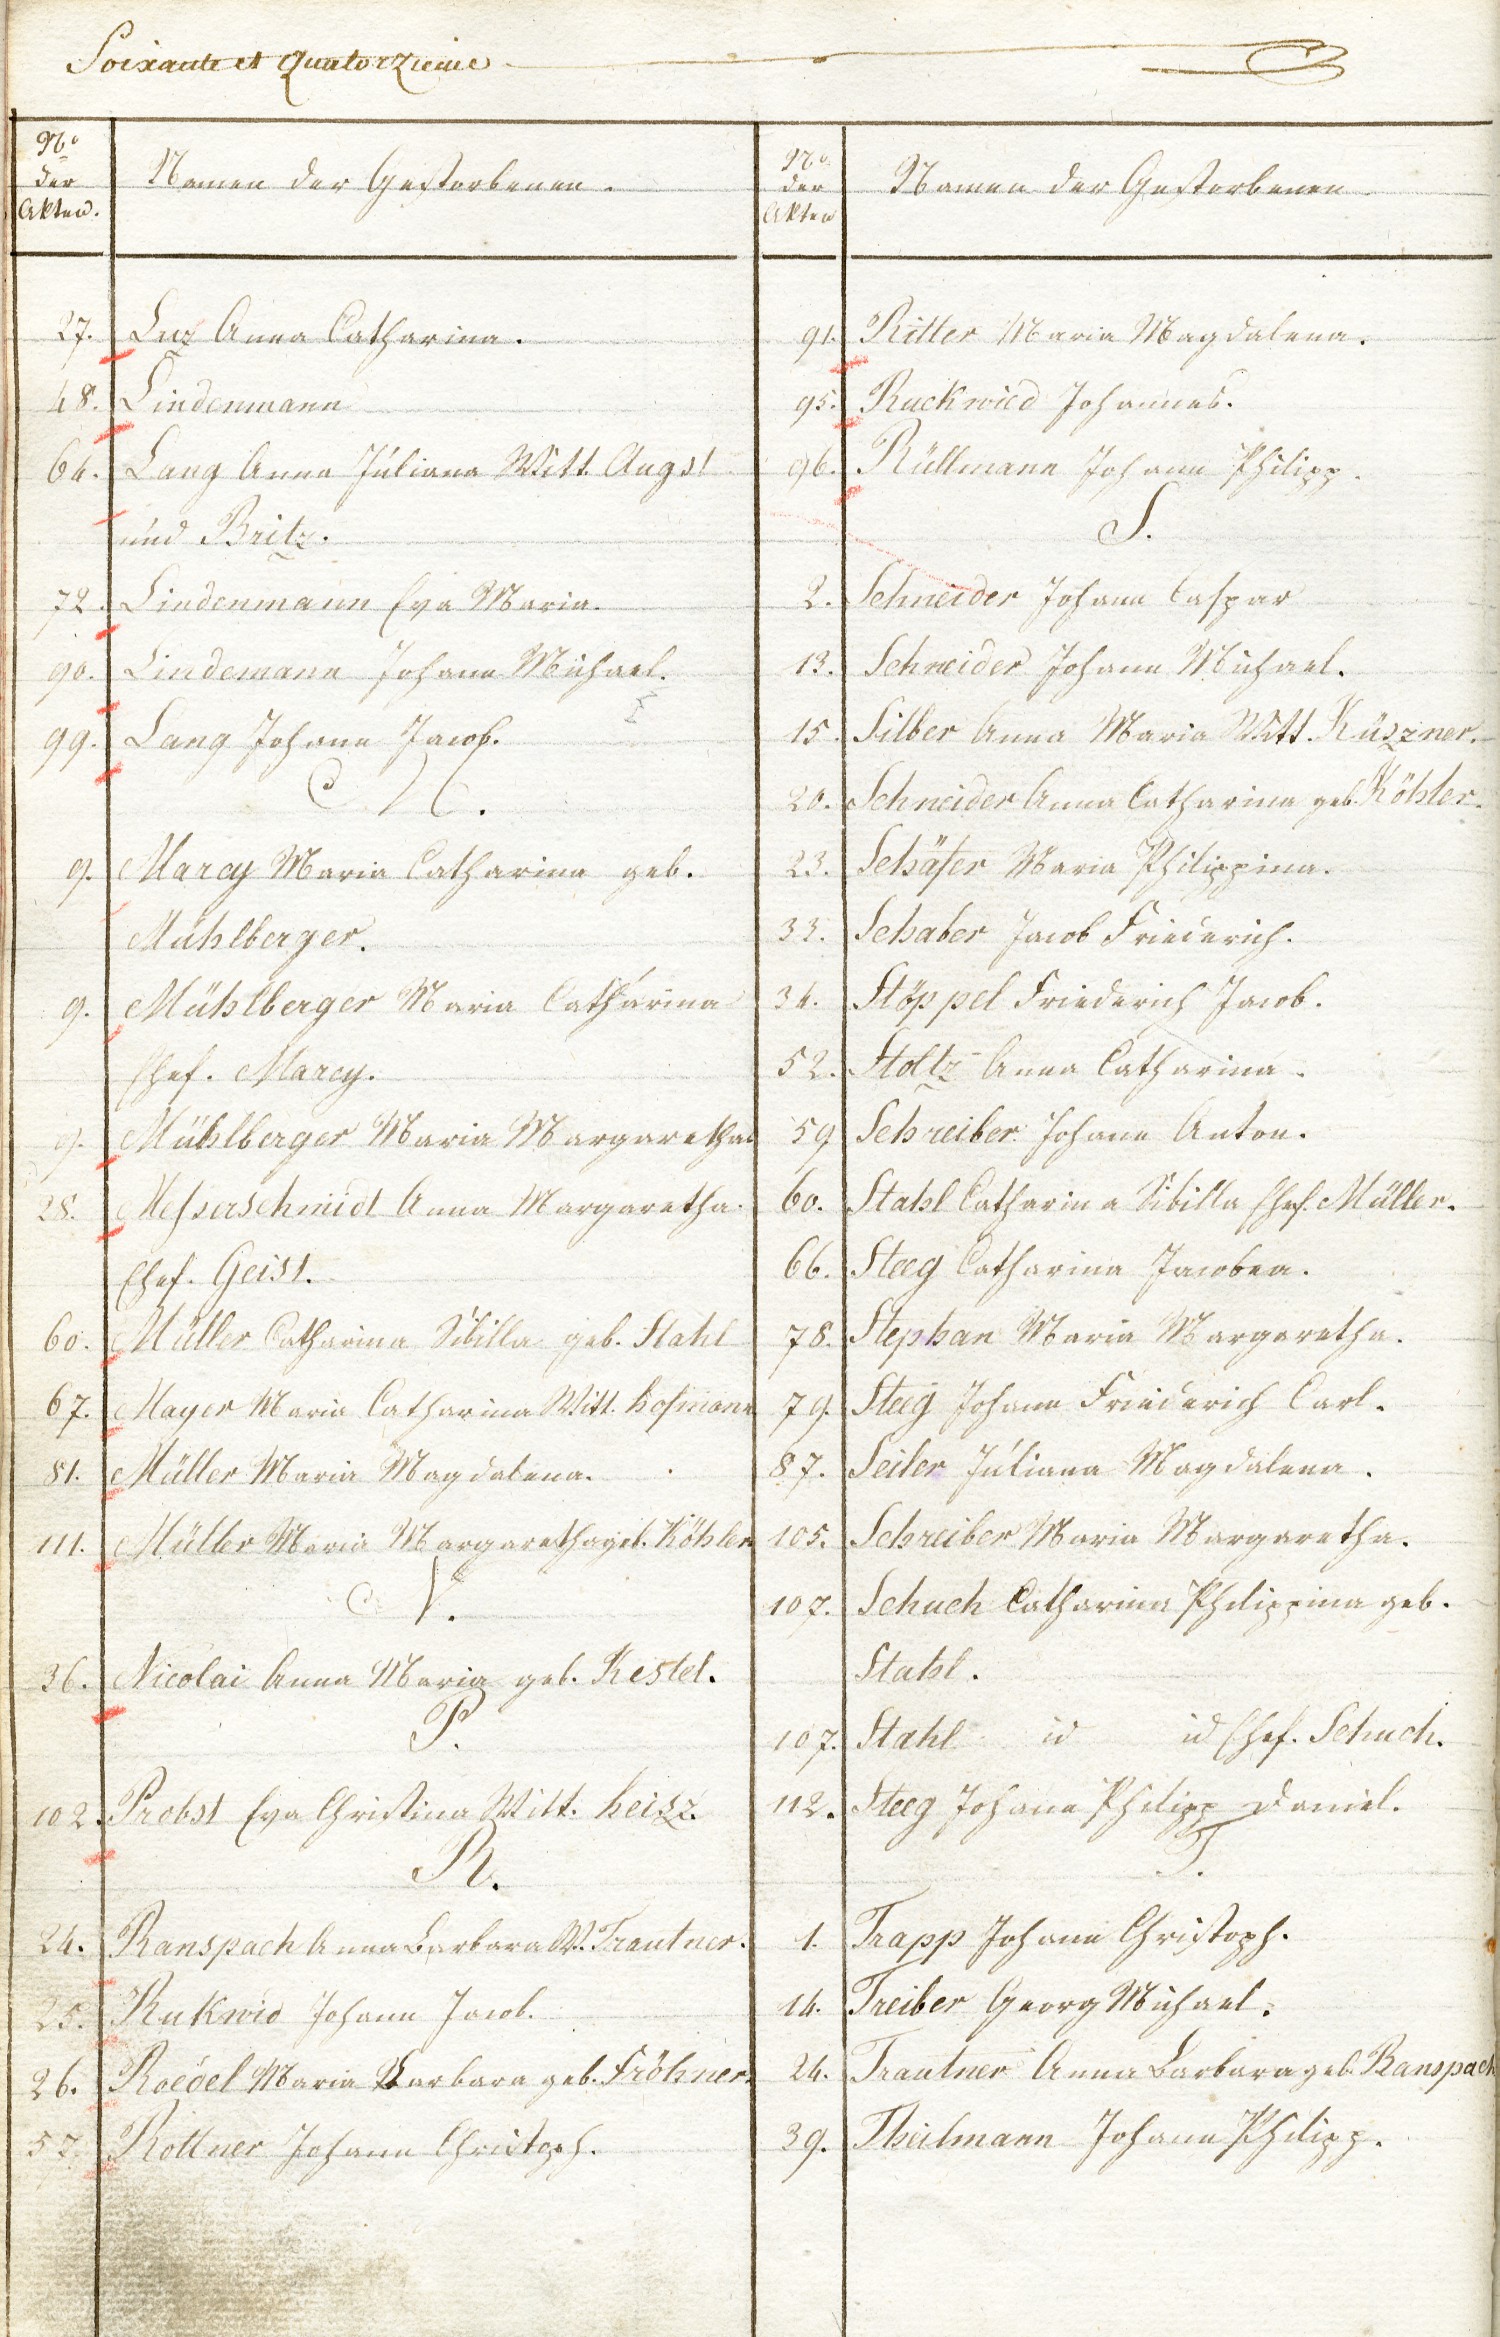 Soixante et Quatorzieme
No
der
Akten.
Namen der Gestorbenen.
27. Luz Anna Catharina.
48. Lindenmann
64. Lang Anna Juliana Witt. Angst
und Britz.
72. Lindenmann Eva Maria.
90. Lindemann Johann Michael.
99. Lang Johann Jacob.
M.
9. Marcy Maria Catharina geb.
Mühlberger.
9. Mühlberger Maria Catharina
Ehef. Marcy.
9. Mühlberger Maria Margaretha
28. Messerschmidt Anna Margaretha.
Ehef. Geist.
60. Müller Catharina Sibilla geb. Stahl
67. Mayer Maria Catharina Witt. Hofmann
81. Müller Maria Magdalena.
111. Müller Maria Margaretha geb. Köhler
N.
36. Nicolai Anna Maria geb. Kestel.
P.
102. Probst Eva Christina Witt. Heisz.
R.
24. Ranspach Anna Barbara W. Trautner.
25. Rukwid Johann Jacob.
26. Roedel Maria Barbara geb. Fröhner.
57. Rottner Johann Christoph.
No
der
Akten
Namen der Gestorbenen
91. Ritter Maria Magdalena.
95. Ruckwied Johannes.
96. Rüllmann Johann Philipp.
S.
2. Schneider Johann Caspar
13. Schneider Johann Michael.
15. Silber Anna Maria Witt. Küszner.
20. Schneider Anna Catharina geb. Köhler.
23. Schäfer Maria Philippina.
33. Schaber Jacob Friederich.
34. Stöppel Friederich Jacob.
52. Stoltz Anna Catharina.
59 Schreiber Johann Anton.
60. Stahl Catharina Sibilla Ehef. Müller.
66. Steeg Catharina Jacobea.
78. Stephan Maria Margaretha.
79. Steeg Johann Friederich Carl.
87. Seiler Juliana Magdalena.
105. Schreiber Maria Margaretha.
107. Schuch Catharina Philippina geb.
Stahl.
107. Stahl id id Ehef. Schuch.
112. Steeg Johann Philipp Daniel.
T.
1. Trapp Johann Christoph.
14. Treiber Georg Michael.
24. Trautner Anna Barbara geb. Ranspach
39. Theilmann Johann Philipp.